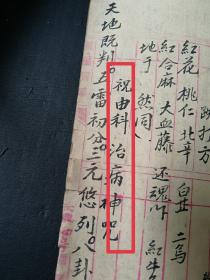 跌打方
紅花 桃仁 北辛 白芷 二烏
紅合麻 大血藤 还魂
地于 然同
祝由科 治病神咒
天地既判。五雷初分。二元悠列。八卦